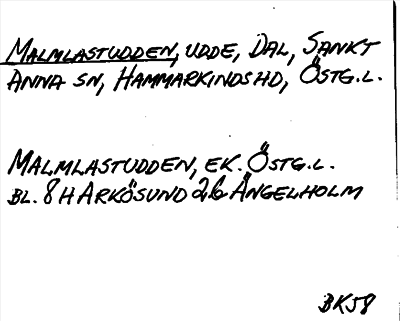 MALMLASTUDDEN, UDDE, DAL, SANKT
ANNA SN, HAMMARKINDS HD, ÖSTG.L.
MALMLASTUDDEN, EK. ÖSTG.L.
BL. 8 H ARKÖSUND 2b ÄNGELHOLM
BK58